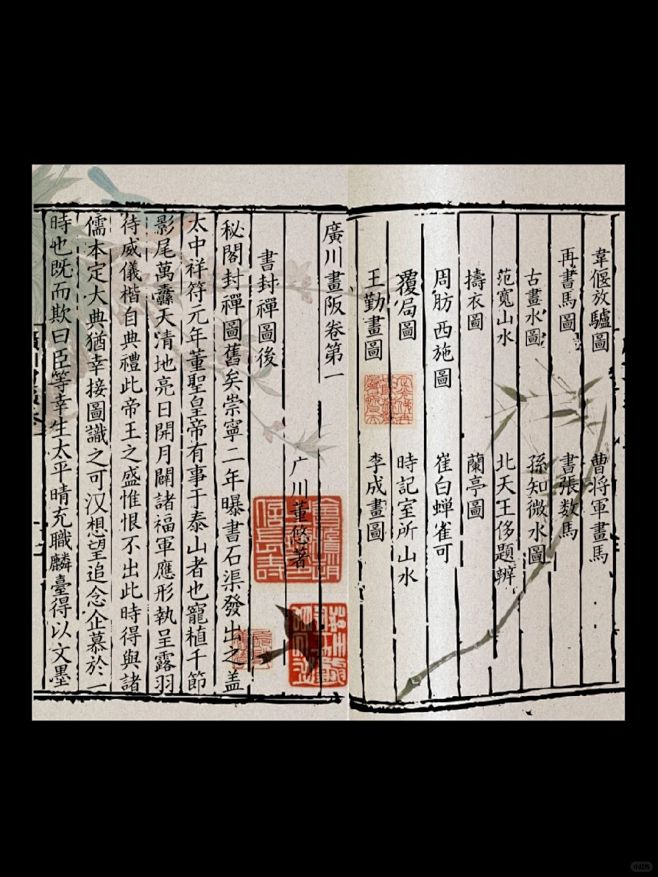 韋偃放驢圖 曹将軍畫馬
再書馬圖 書張数馬
古畫水圖 孫知微水圖
范寬山水 北天王侈題辨
擣衣圖 蘭亭圖
周肪西施圖 崔白蝉雀可
覆局圖 時記室所山水
王勤畫圖 李成畫圖
廣川畫阪卷第一
广川董悠著
書封禪圖後
秘閣封禪圖舊矣崇寧二年曝書石渠發出之盖
太中祥符元年董聖皇帝有事于泰山者也寵植千節
影尾萬纛天清地亮日開月闢諸福軍應形執呈露羽
待威儀楷自典禮此帝王之盛惟恨不出此時得與諸
儒本定大典猶幸接圖識之可汉想望追念企慕於一
時也既而欺曰臣等幸生太平晴充職麟臺得以文墨